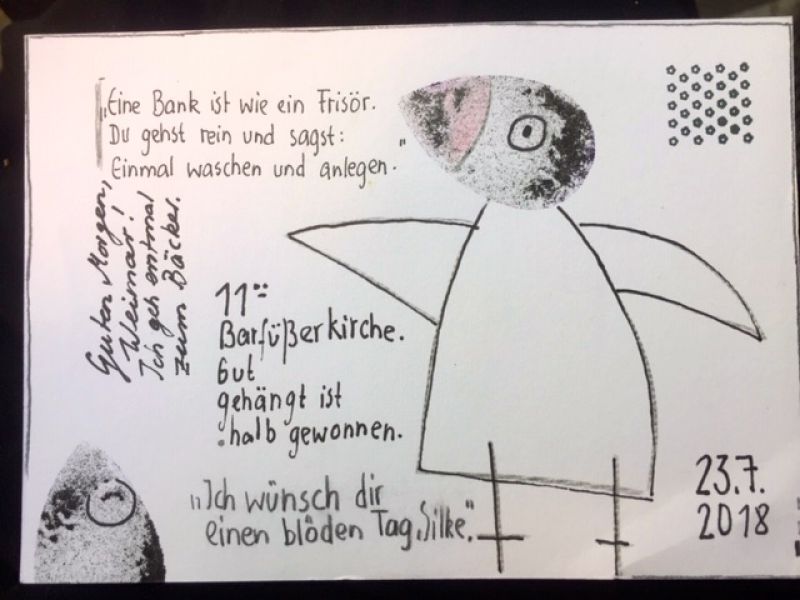 „Eine Bank ist wie ein Frisör.
Du gehst rein und sagst:
Einmal waschen und anlegen."
Guten Morgen,
Weimar!
Ich geh entmal
zum Bäcker.
11⁰⁰
Barfüßerkirche.
Gut
gehängt ist
halb gewonnen.
„Ich wünsch dir
einen blöden Tag, Silke."
23.7.
2018